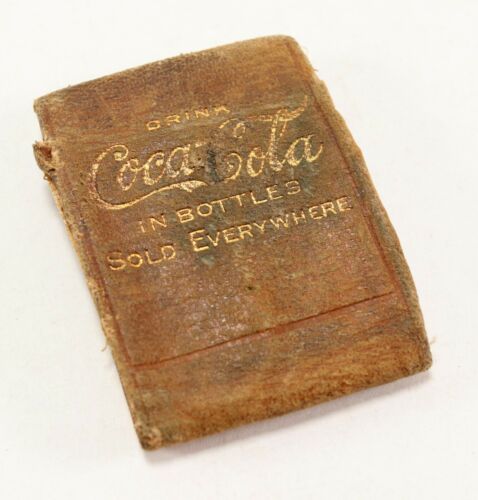 DRINK
Coca-Cola
IN BOTTLES
SOLD EVERYWHERE